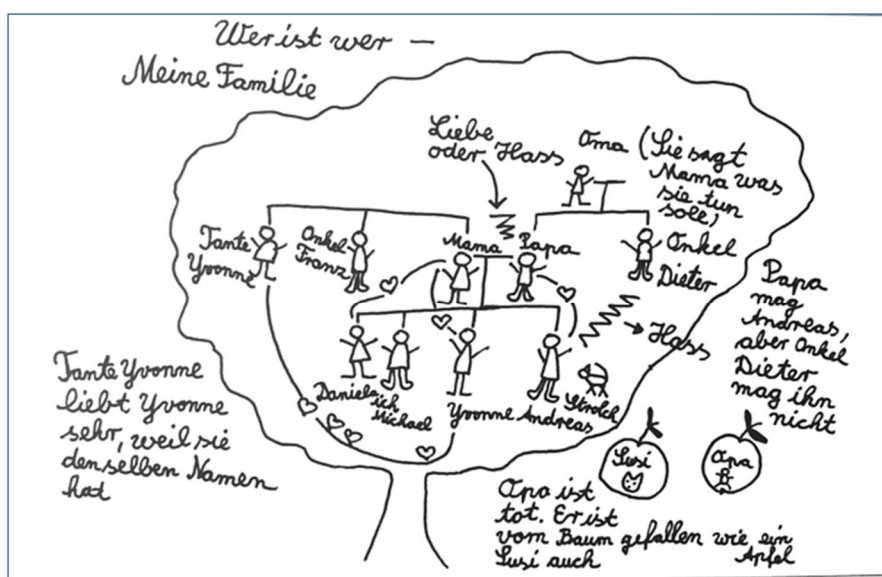 Wer ist wer —
Meine Familie
Liebe
oder Hass
Oma (Sie sagt
Mama was
sie tun
soll)
Tante
Yvonne
Onkel
Franz
Mama
Papa
Onkel
Dieter
Hass
Papa
mag
Andreas,
aber Onkel
Dieter
mag ihn
nicht
Daniela
ich
Michael
Yvonne
Andreas
Strolch
Tante Yvonne
liebt Yvonne
sehr, weil sie
denselben Namen
hat
Susi
Opa
Opa ist
tot. Er ist
vom Baum gefallen wie ein
Apfel
Susi auch